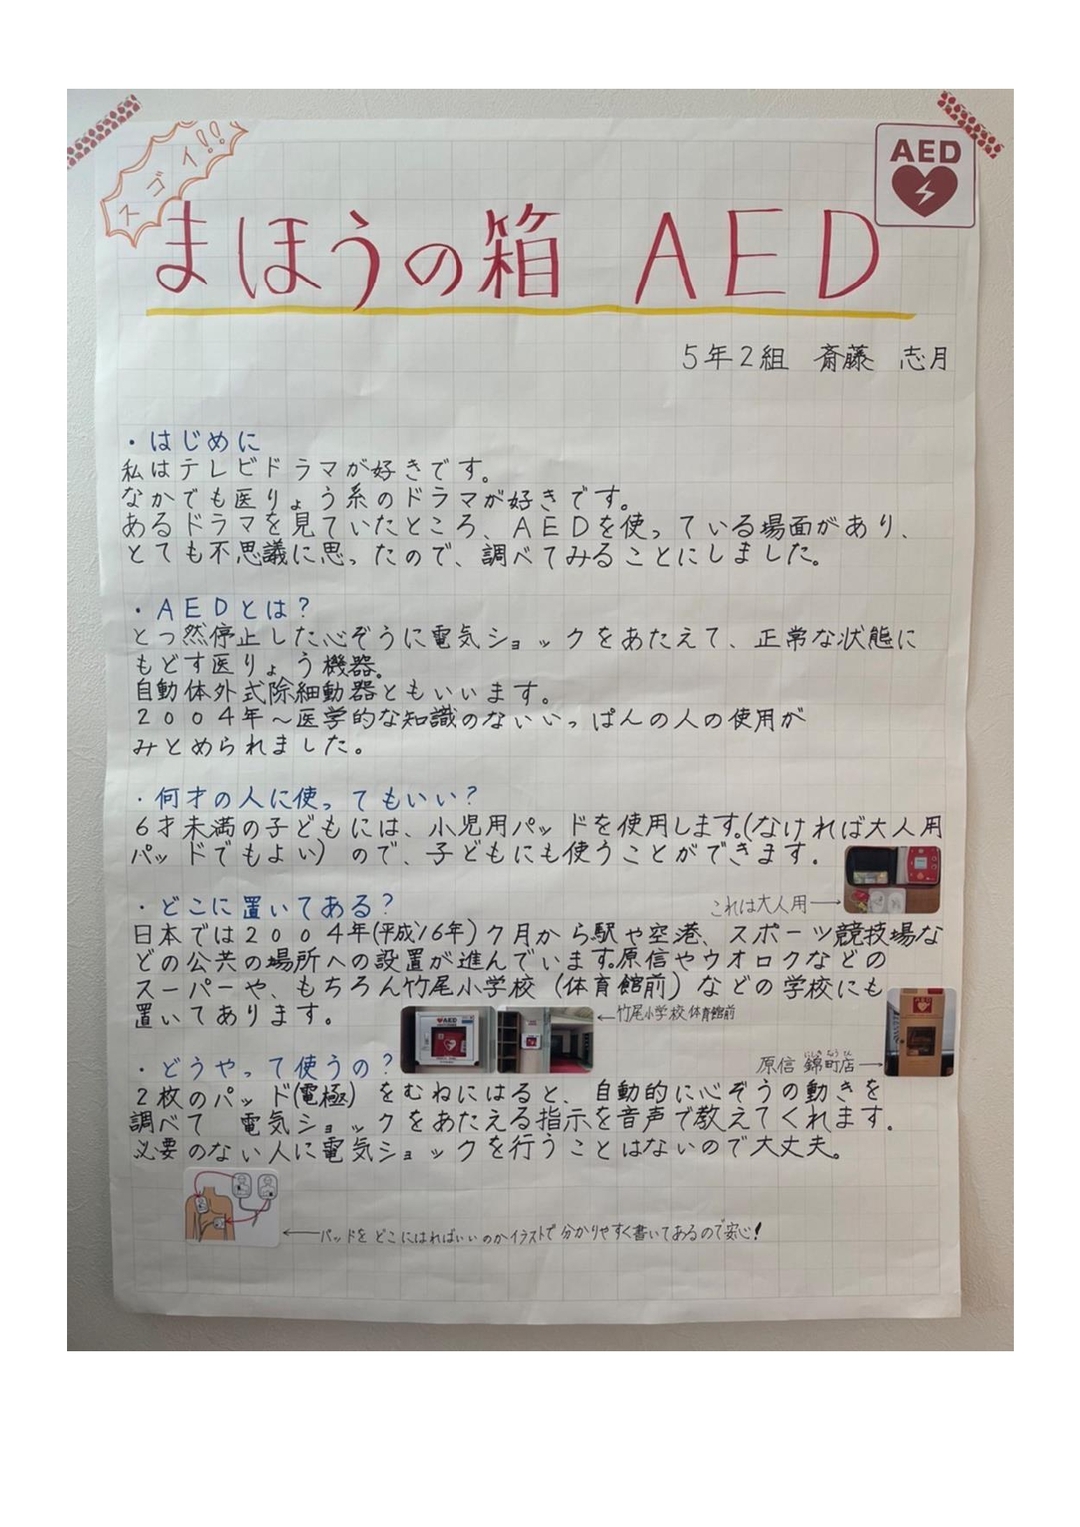 スゴイ!!
AED
まほうの箱 AED
5年2組 斎藤 志月
・はじめに
私はテレビドラマが好きです。
なかでも医りょう系のドラマが好きです。
あるドラマを見ていたところ、AEDを使っている場面があり、
とても不思議に思ったので、調べてみることにしました。
・AEDとは?
とつ然停止した心ぞうに電気ショックをあたえて、正常な状態に
もどす医りょう機器。
自動体外式除細動器ともいいます。
2004年~医学的な知識のないいっぱんの人の使用が
みとめられました。
・何才の人に使ってもいい?
6才未満の子どもには、小児用パッドを使用します。(なければ大人用
パッドでもよい)ので、子どもにも使うことができます。
これは大人用→
・どこに置いてある?
日本では2004年(平成16年)7月から駅や空港、スポーツ競技場な
どの公共の場所への設置が進んでいます。原信やウオロクなどの
スーパーや、もちろん竹尾小学校(体育館前)などの学校にも
置いてあります。
AED
←竹尾小学校体育館前
AED
原信 錦町店→
・どうやって使うの?
2枚のパッド(電極)をむねにはると、自動的に心ぞうの動きを
調べて 電気ショックをあたえる指示を音声で教えてくれます。
必要のない人に電気ショックを行うことはないので大丈夫。
←パッドをどこにはればいいのかイラストで分かりやすく書いてあるので安心!